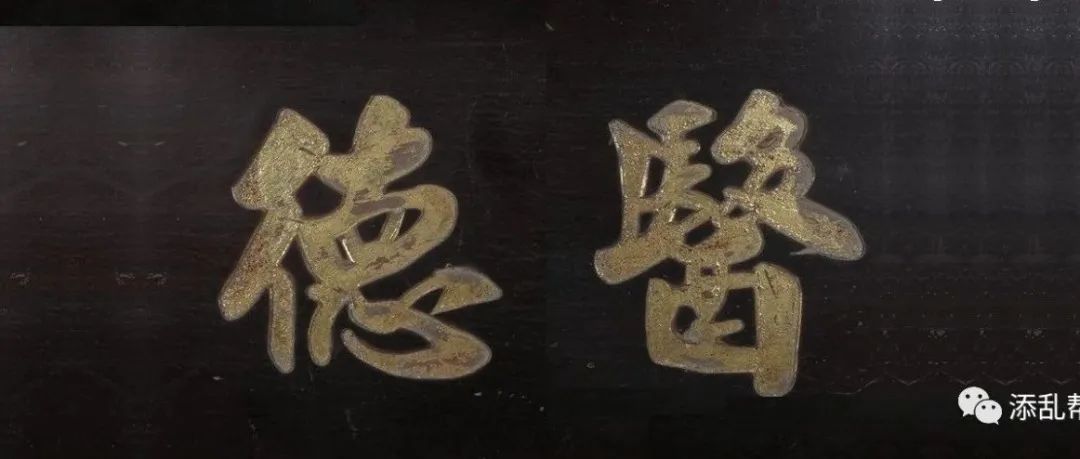 醫德
添乱帮